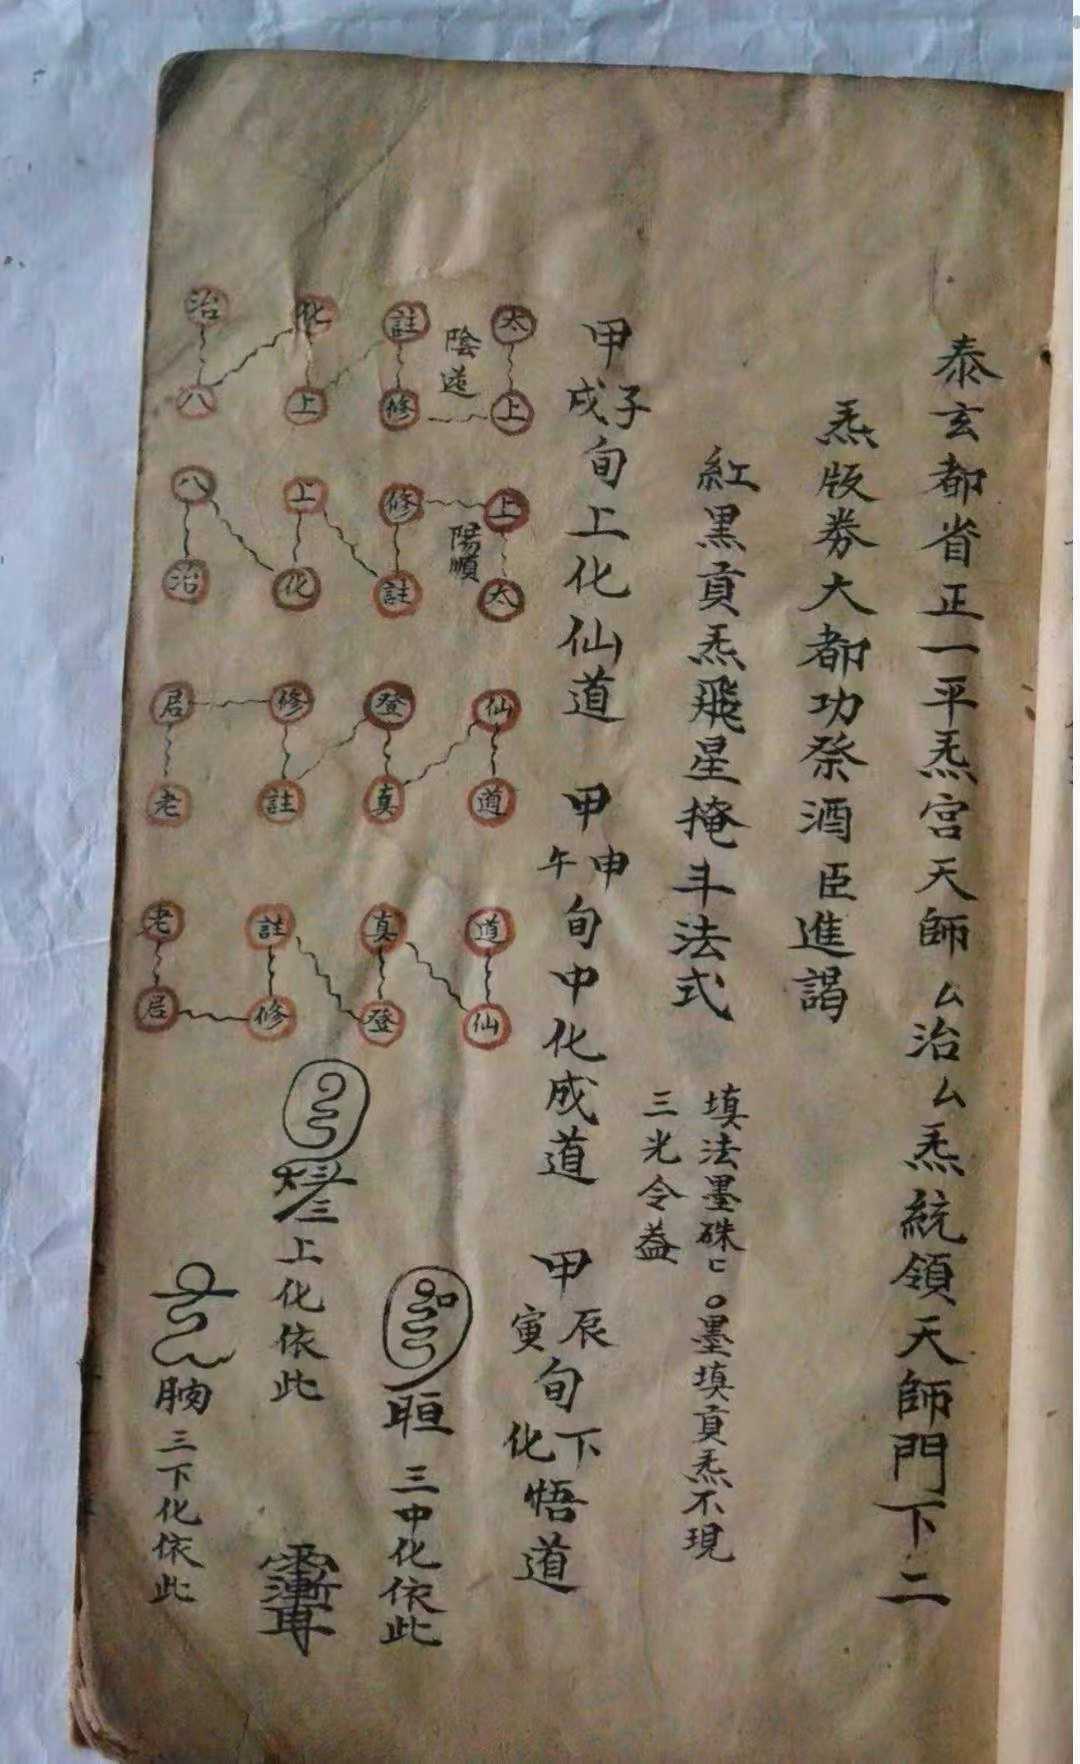 泰玄都省正一平炁宮天師厶治厶炁統領天師門下二
炁版券大都功祭酒臣進謁
紅黑貢炁飛星掩斗法式
填法墨硃匕。墨填貢炁不現
三光令益
甲子戌旬上化仙道 甲申午旬中化成道 甲辰寅旬下化悟道
太 註 化 治
陰逆
上 修 上 八
上 修 上 八
陽順
太 註 化 治
仙 登 修 居
道 真 註 老
道 真 註 老
仙 登 修 居
三中化依此
上化依此
三下化依此